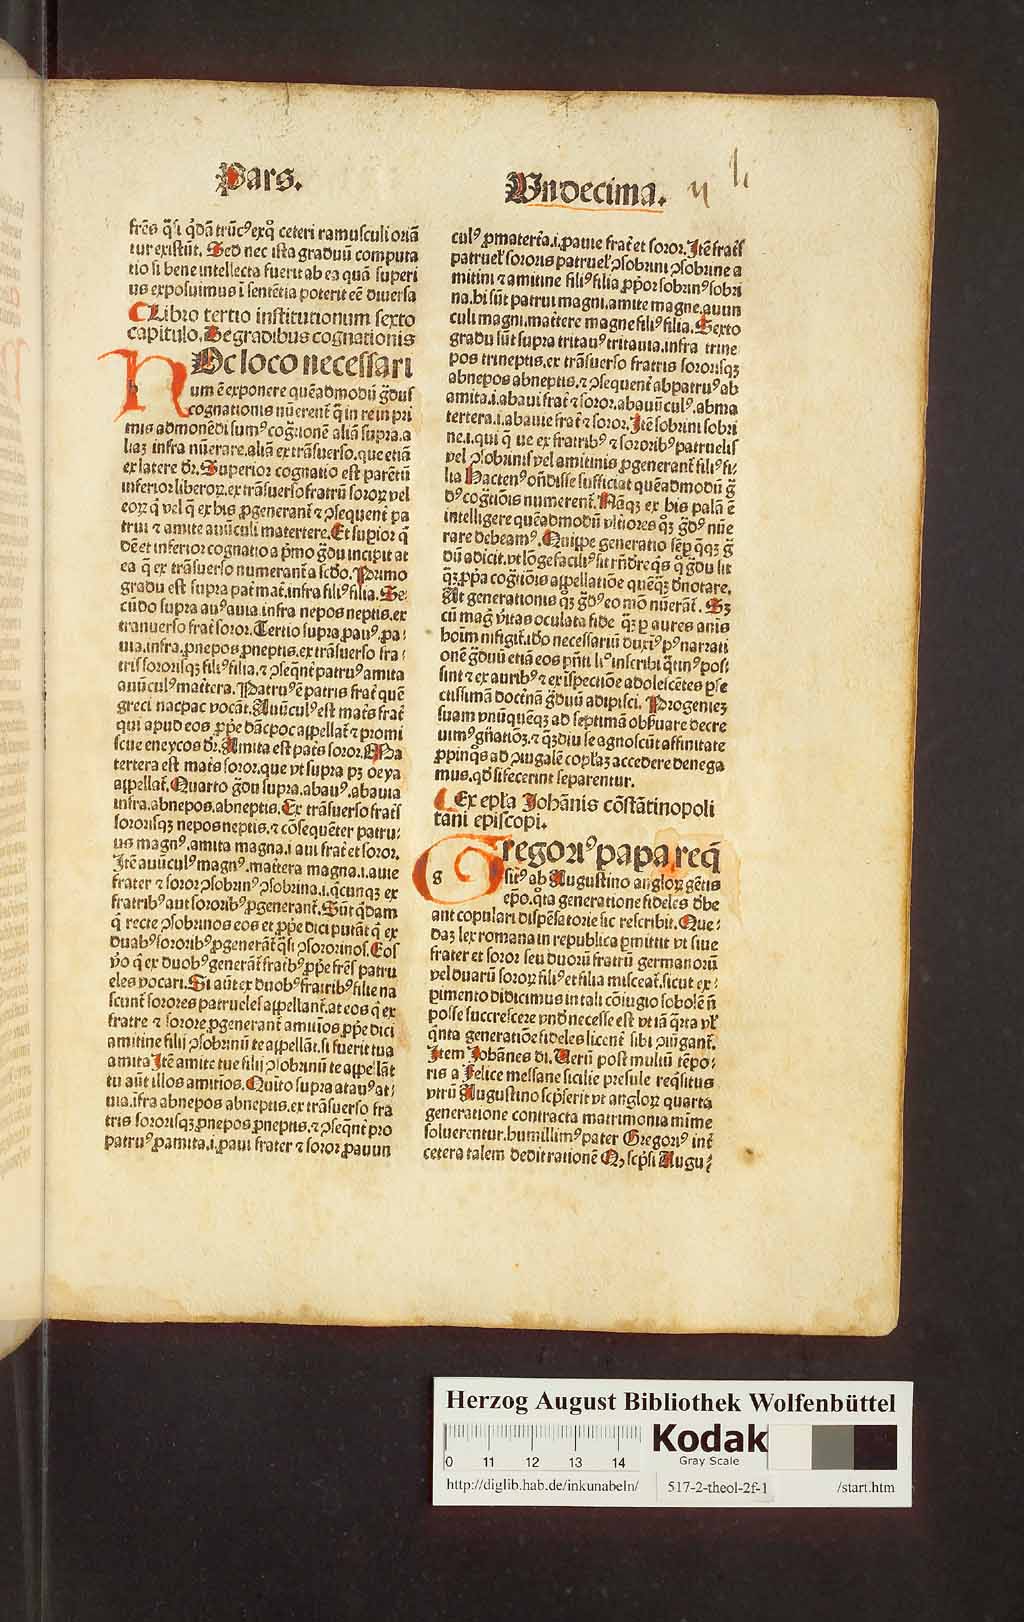 Pars.
Vndecima.
frēs q̄si q̇dā trūcꝰ exq̊ ceteri ramusculi oriā
tur existūt. Sed nec ista graduū computa
tio si bene intellecta fuerit ab ea quā superi
us exposuimus ī sentētia poterit eē diuersa
Libro tertio institutionum sexto
capitulo. De gradibus cognationis
h
Oc loco necessari
um ē exponere quēadmodū g̊dus
cognationis nūerent᷑ q̄ in re in pri
mis admonēdi sumꝰ cog̊tionē aliā supra. a
liaꝫ infra nūerare. aliā ex trāsuerso. que etiā
ex latere dr̄. Superior cognatio est parētū
inferior liberoꝝ. ex trāsuerso fratrū soroꝝ vel
eoꝝ q̄ vel q̄ ex his ꝓgenerant᷑ ⁊ ↄsequent᷑ pa
trui ⁊ amite auūculi matertere. Et supior q̇
dē et inferior cognatio a p̄mo g̊du incipit at
ea q̄ ex trāsuerso numerant᷑ a scd̄o. Primo
gradu est supra pat᷑ mat᷑. infra filiꝰ filia. Se
cūdo supra auꝰ auia. infra nepos neptis. ex
tranuerso frat᷑ soror. Tertio supra ꝓauꝰ. ꝓa
uia. infra. ꝓnepos ꝓneptis. ex trāsuerso fra
tris sororisqꝫ filiꝰ filia. ⁊ ↄseqn̄t᷑ patruꝰ amita
auūculꝰ mat᷑tera. Patruꝰ ē patris frat᷑ quē
greci nacpac vocāt. Auūculꝰ est mat᷑s frat᷑
qui apud eos ꝓp̄e dācpoc appellat᷑ ⁊ promi
scue eneycos dr̄. Amita est pat᷑s soror. Ma
tertera est mat᷑s soror. que vt supra pꝫ oeya
appellat᷑. Quarto g̊du supra. abauꝰ. abauia
infra. abnepos. abneptis. Ex trāsuerso frat᷑s
sororisqꝫ nepos neptis. ⁊ cōsequēter patru
us magnꝰ. amita magna. i aui frat᷑ et soror.
Itē auūculꝰ magnꝰ. mat᷑tera magna. i. auie
frater ⁊ soror ↄsobrinꝰ ↄsobrina. i. q̄cunqꝫ ex
fratribꝰ aut sororibꝰ ꝓgenerant᷑. Sūt q̇dam
q̄ recte ↄsobrinos eos et ꝓp̄e dici putāt q̄ ex
duabꝰ sororibꝰ ꝓgenerāt᷑ q̄si ↄsororinos. Eos
v̊o q̄ ex duobꝰ generāt᷑ frat᷑bꝰ ꝓp̄e frēs patru
eles vocari. Si aūt ex duobꝰ fratribꝰ filie na
scunt᷑ sorores patrueles appellant᷑. at eos q̄ ex
fratre ⁊ sorore ꝓgenerant᷑ amitīos ꝓp̄e dici
amitine filij ↄsobrinū te appellāt. si fuerit tua
amita Itē amite tue filij ↄsobrinū te appellāt
tu aūt illos amitios. Quīto supra atauꝰ at
uia. īfra abnepos abneptis. ex trāsuerso fra
tris sororisqꝫ ꝓnepos ꝓneptis. ⁊ ↄseqn̄t᷑ pro
patruꝰ ꝓamita. i. ꝓaui frater ⁊ soror ꝓauun
culꝰ ꝓmatert᷑a. i. ꝓauie frat᷑ et soror. Itē frat᷑s
patruel᷑ sororis patruel᷑ ↄsobrini ↄsobrine a
mitini ⁊ amitine filiꝰ filia ꝓp̊or sobrinꝰ sobri
na. hi sūt patrui magni. amite magne. auun
culi magni. mat᷑tere magne filiꝰ filia. Sexto
gradu sūt supra tritauꝰ tritauia. infra trine
pos trineptis. ex trāsuerso fratris sororisqꝫ
abnepos abneptis. ⁊ ↄsequent᷑ abpatruꝰ ab
amita. i. abaui frat᷑ ⁊ soror. abauūculꝰ. abma
tertera. i. abauie frat᷑ ⁊ soror. Itē sobrini sobri
ne. i. qui q̄ ue ex fratribꝰ ⁊ sororibꝰ patruelis
vel ↄsobrinis vel amitinis ꝓgenerant᷑ filiꝰ fi
lia Hactenꝰ on̄disse sufficiat quēadmodū g̊
dꝰ cogtiōis numerent᷑. Nāqꝫ ex his palā ē
intelligere quēadmodū vltiores qꝫ g̊dꝰ nūe
rare debeamꝰ. Quippe generatio semꝑ q̄qꝫ g̊
dū adicit. vt lōge faciliꝰ sit rn̄dre q̊s q̊ g̊du sit
q̄ꝫ ꝓp̄a cog̊tiōis appellatiōe quēqꝫ d̄notare.
At generationis q̊ꝫ g̊dꝰ eo mō nūerāt᷑. Sꝫ
cū mag᷑ v̊itas oculata fide q̄ꝫ ꝑ aures anīs
hoīm nifigit᷑. iđo necessariū duxīꝰ pꝰ narrati
onē g̊duū etiā eos pn̄ti liꝰ inscribi q̊tinꝰ pos
sint ⁊ ex auribꝰ ⁊ ex īspectiōe adolescētes ꝑfe
ctissimā doctnā g̊duū adipisci. Progenieꝫ
suam vnūquēqꝫ ad septimā obseruare decre
uimꝰ gn̄atioꝫ. ⁊ qꝫdiu se agnoscūt affinitate
ꝓpinq̊s ad ↄiugalē copl᷑aꝫ accedere denega
mus. qđ si fecerint separentur.
Ex epl᷑a Johānis cōstātinopoli
tani episcopi.
g
Gregoriꝰ papa req̇
sitꝰ ab Augustino angloꝝ gētis
ep̄o. q̊ta generatione fideles d̄be
ant copulari dispēsatorie sic rescribit. Que
daꝫ lex romana in republica ꝑmittit vt siue
frater et soror seu duorū fratrū germanorū
vel duarū soroꝝ filiꝰ et filia misceāt᷑. sicut ex
pimento didicimus in tali cōiugio sobolē n̄
posse succrescere vnđ necesse est vt iā q̊rta vl᷑
q̇nta generatiōe fideles licent᷑ sibi ↄiūgant᷑.
Item Johānes di. Uerū post multū tēpo
ris a Felice messane sicilie presule req̇situs
vtrū Augustino scp̄serit vt angloꝝ quarta
generatione contracta matrimonia mīme
soluerentur. humillimꝰ pater Gregoriꝰ int᷑
cetera talem dedit rationē Qꝫ scp̄si Augu
Herzog August Bibliothek Wolfenbüttel
0 11 12 13 14
Kodak
Gray Scale
http://diglib.hab.de/inkunabeln/ 517-2-theol-2f-1 /start.htm